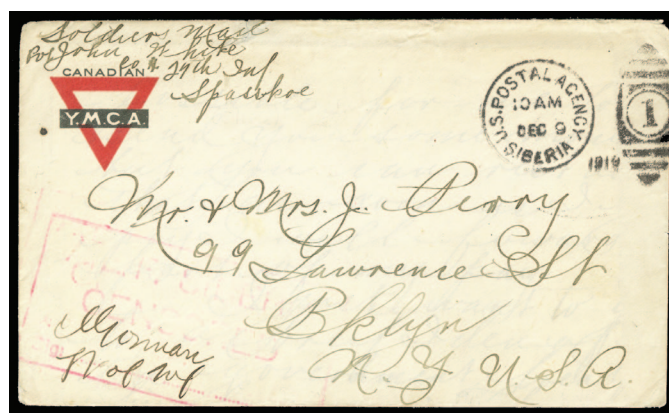 Soldiers Mail
Pvt John White
Co 27th Inf
Spasskoe
CANADIAN
Y.M.C.A.
U.S. POSTAL AGENCY
10 AM
DEC 9
SIBERIA.
1919
1
Mr. & Mrs. J. Perry
99 Lawrence St
Bklyn
N. Y. U. S. A.
CENSORED